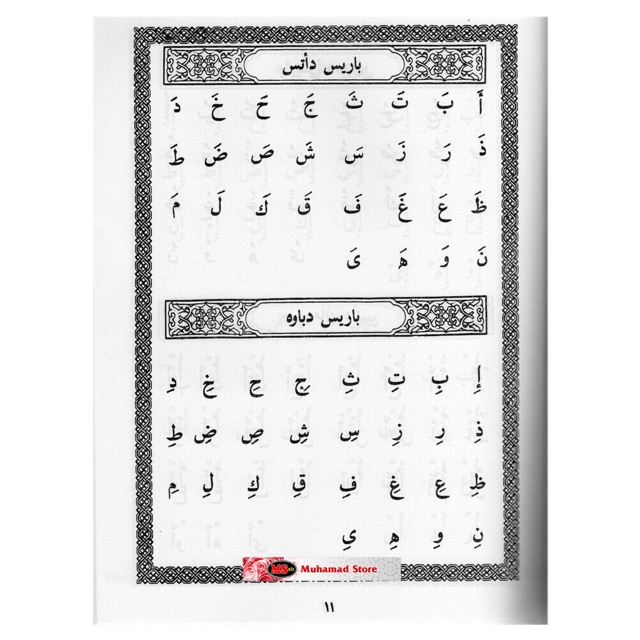 باريس دأتس
أَ بَ تَ ثَ جَ حَ خَ دَ
ذَ رَ زَ سَ شَ صَ ضَ طَ
ظَ عَ غَ فَ قَ كَ لَ مَ
نَ وَ هَ يَ
باريس دباوه
إِ بِ تِ ثِ جِ حِ خِ دِ
ذِ رِ زِ سِ شِ صِ ضِ طِ
ظِ عِ غِ فِ قِ كِ لِ مِ
نِ وِ هِ يِ
Muhamad Store
١١